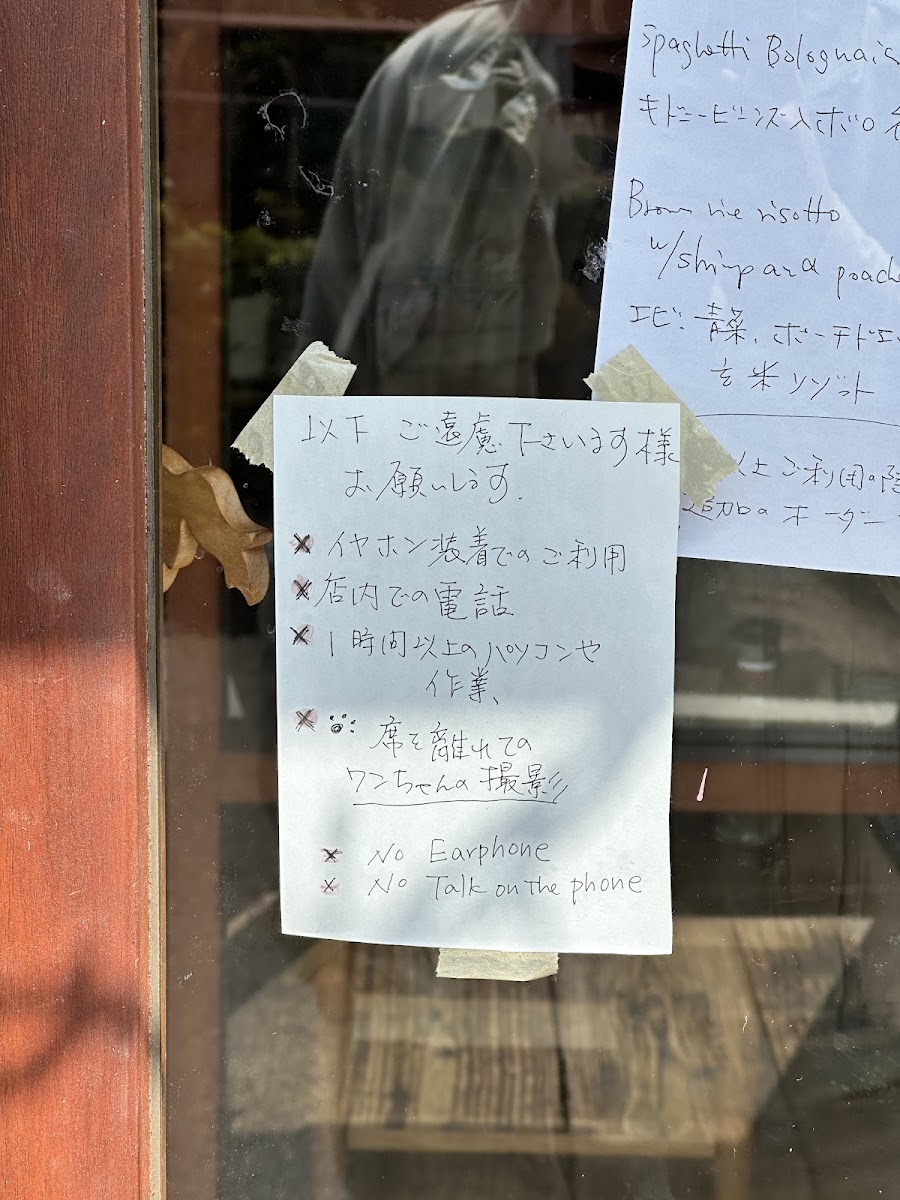 Spaghetti Bolognais
キドニービーンズ入ボロ
Brown rice risotto
w/shrimp and poache
エビ、青菜、ポーチドエ
玄米リゾット
以上ご利用の際
追加のオーダー
以下 ご遠慮下さいます様
お願いします.
× イヤホン装着でのご利用
× 店内での電話
× 1時間以上のパソコンや
作業、
× 席を離れての
ワンちゃんの撮影
× No Earphone
× No Talk on the phone